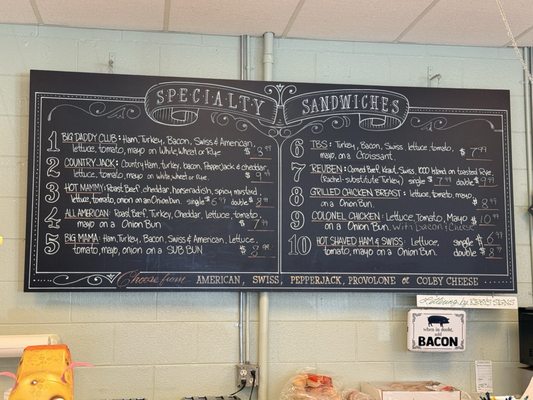 SPECIALTY SANDWICHES
1 BIG DADDY CLUB: Ham, Turkey, Bacon, Swiss & American,
lettuce, tomato, mayo on White, wheat or Rye
2 COUNTRY JACK: Country Ham, turkey, bacon, Pepperjack & cheddar
lettuce, tomato, mayo on white, wheat or rye.
3 HOT MAMMY: Roast Beef, cheddar, horseradish, spicy mustard,
lettuce, tomato, onion on an Onion bun. single double
4 ALL AMERICAN: Roast Beef, Turkey, Cheddar, Lettuce, tomato,
mayo on a Onion Bun.
5 BIG MAMA: Ham, Turkey, Bacon, Swiss & American, Lettuce,
tomato, mayo, onion on a SUB BUN
6 TBS: Turkey, Bacon, Swiss, lettuce, tomato, $7.99
mayo, on a Croissant.
7 REUBEN: Corned Beef, Kraut, Swiss, 1000 Island on toasted Rye.
(Rachel-substitute Turkey) single $7.99 double $9.99
8 GRILLED CHICKEN BREAST: lettuce, tomato, mayo
on a Onion Bun. $8.99
9 COLONEL CHICKEN: Lettuce, Tomato, Mayo $10.99
on a Onion Bun. with Bacon & Cheese
10 HOT SHAVED HAM & SWISS: Lettuce, single $6.99
tomato, mayo on a Onion Bun. double $8.99
Cheese from AMERICAN, SWISS, PEPPERJACK, PROVOLONE or COLBY CHEESE
when in doubt, add
BACON